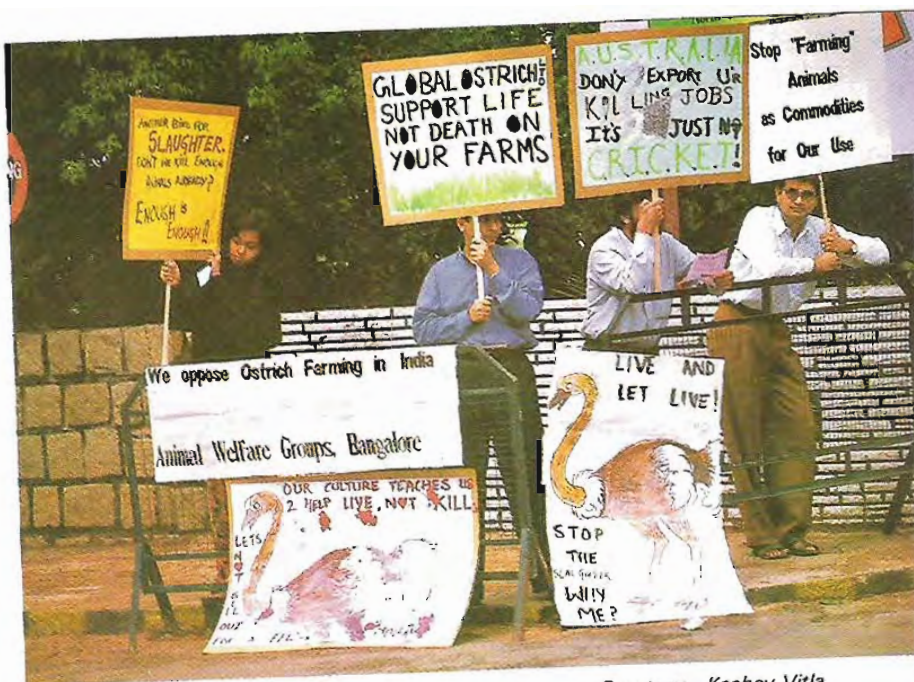 ANOTHER BIRD FOR
SLAUGHTER.
DON'T WE KILL ENOUGH
ANIMALS ALREADY?
ENOUGH IS
ENOUGH!!
GLOBAL OSTRICH LTD
SUPPORT LIFE
NOT DEATH ON
YOUR FARMS
A.U.S.T.R.A.L.I.A
DON'T EXPORT UR
KILLING JOBS
IT'S JUST NOT
CRICKET!
Stop "Farming"
Animals
as Commodities
for Our Use
We oppose Ostrich Farming in India
Animal Welfare Groups, Bangalore
OUR CULTURE TEACHES US
2 HELP LIVE, NOT KILL
LETS
NOT
SELL
OUT
FOR A
LIVE AND
LET LIVE!
STOP
THE
SLAUGHTER
WHY
ME?
Keshav Vitla